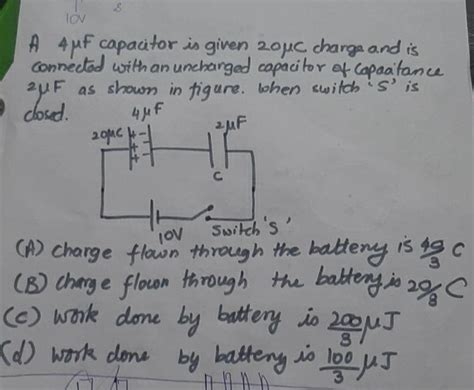 10V
S
A 4μF capacitor is given 20μC charge and is
connected with an uncharged capacitor of capacitance
2μF as shown in figure. When switch 'S' is
closed.
4μF
20μC
+ -
+ -
+ -
2μF
C
10V
Switch 'S'
(A) charge flown through the battery is 40/3 C
(B) charge flown through the battery is 20/3 C
(c) work done by battery is 200/3 μJ
(d) work done by battery is 100/3 μJ